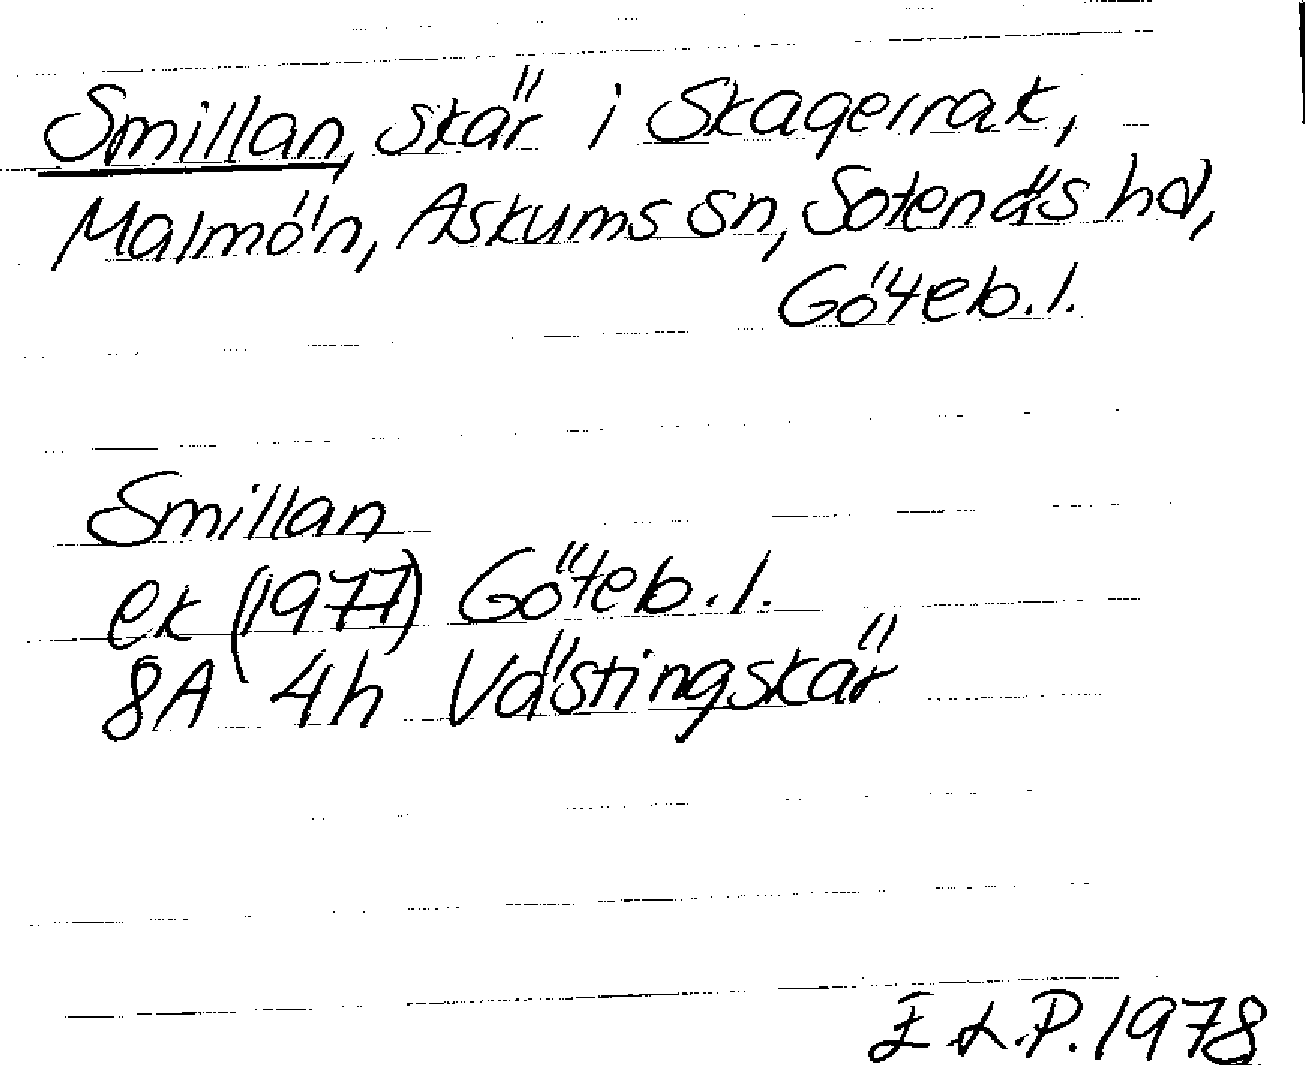 Smillan, skär i Skagerrak,
Malmön, Askums sn, Sotenäs hd,
Göteb. l.
Smillan
ek (1977) Göteb. l.
8A 4h Västingskär
E L.P. 1978